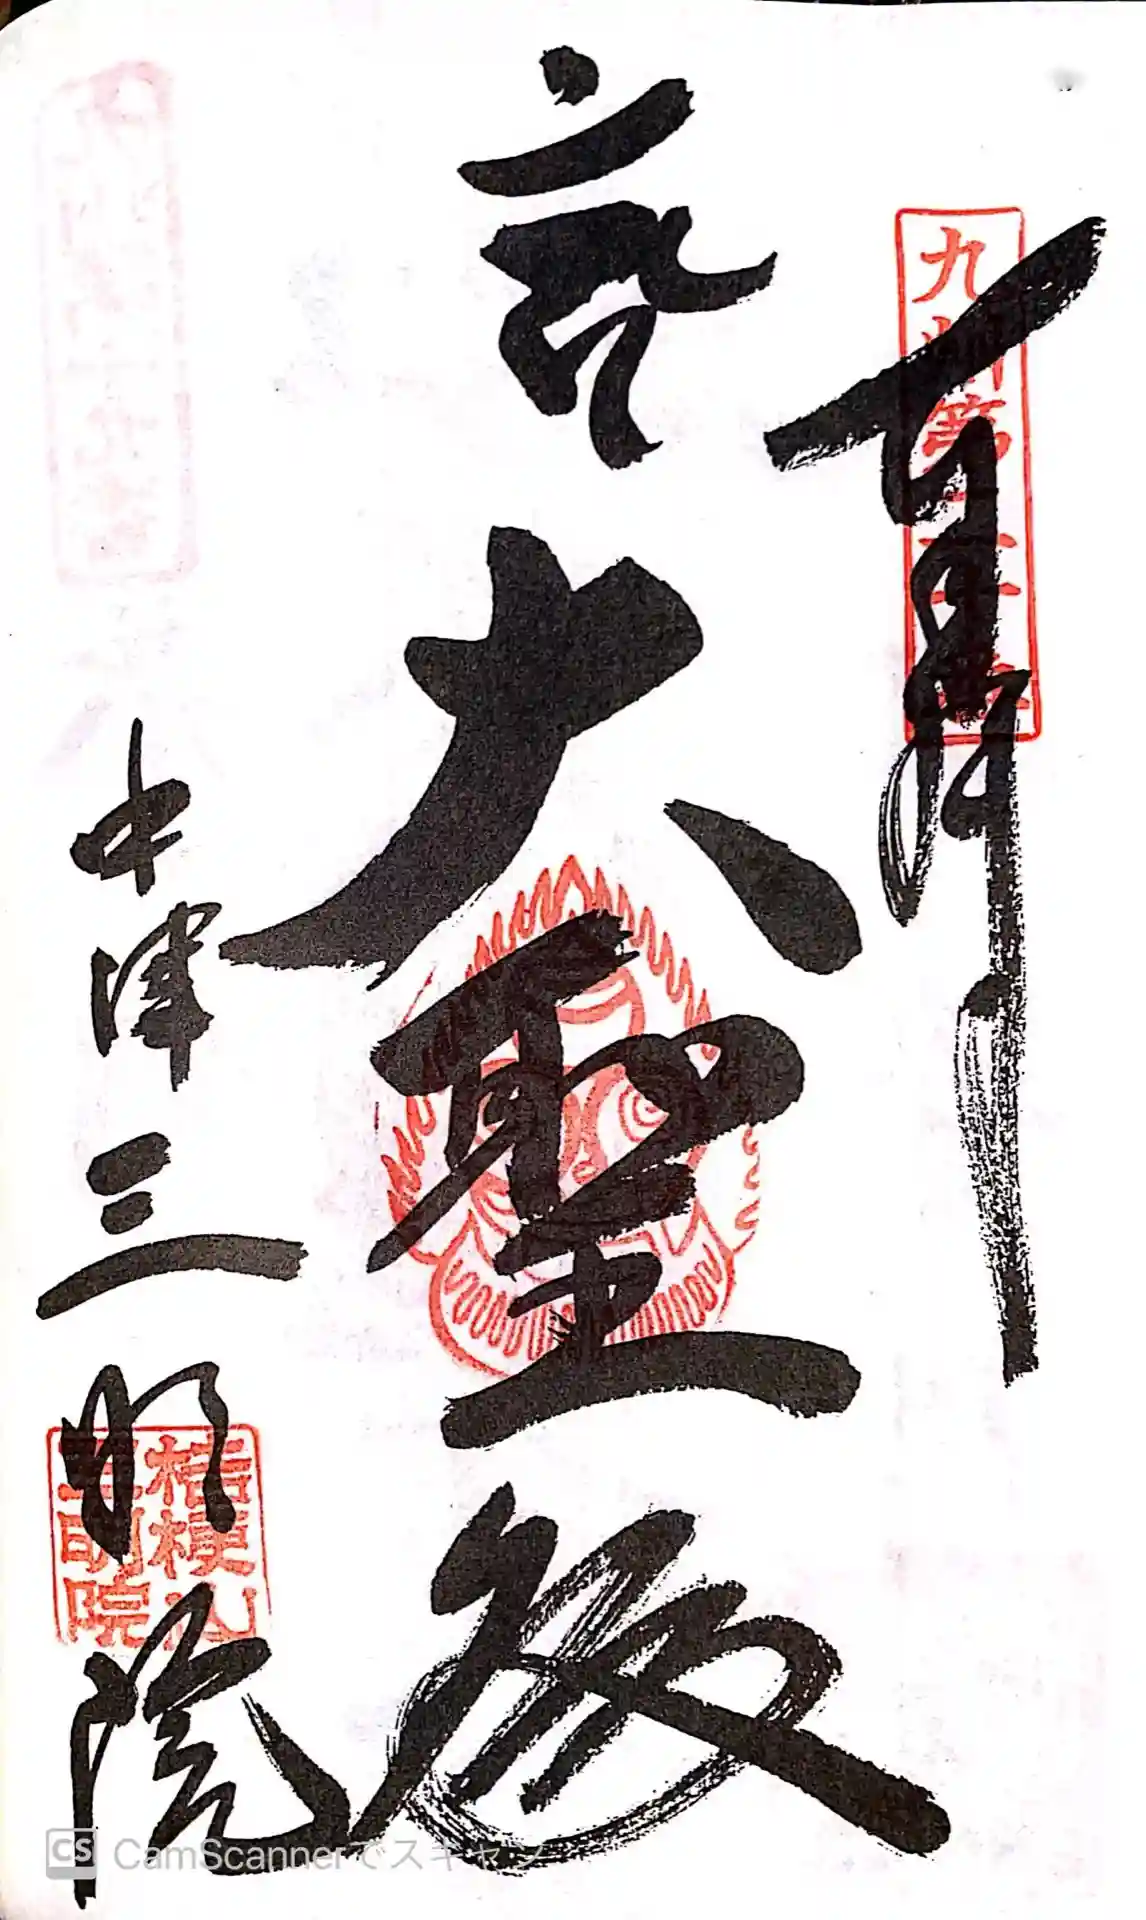 奉拝
大聖殿
中津三明院
九州第二十番
桔梗山
三明院
CS CamScannerでスキャン